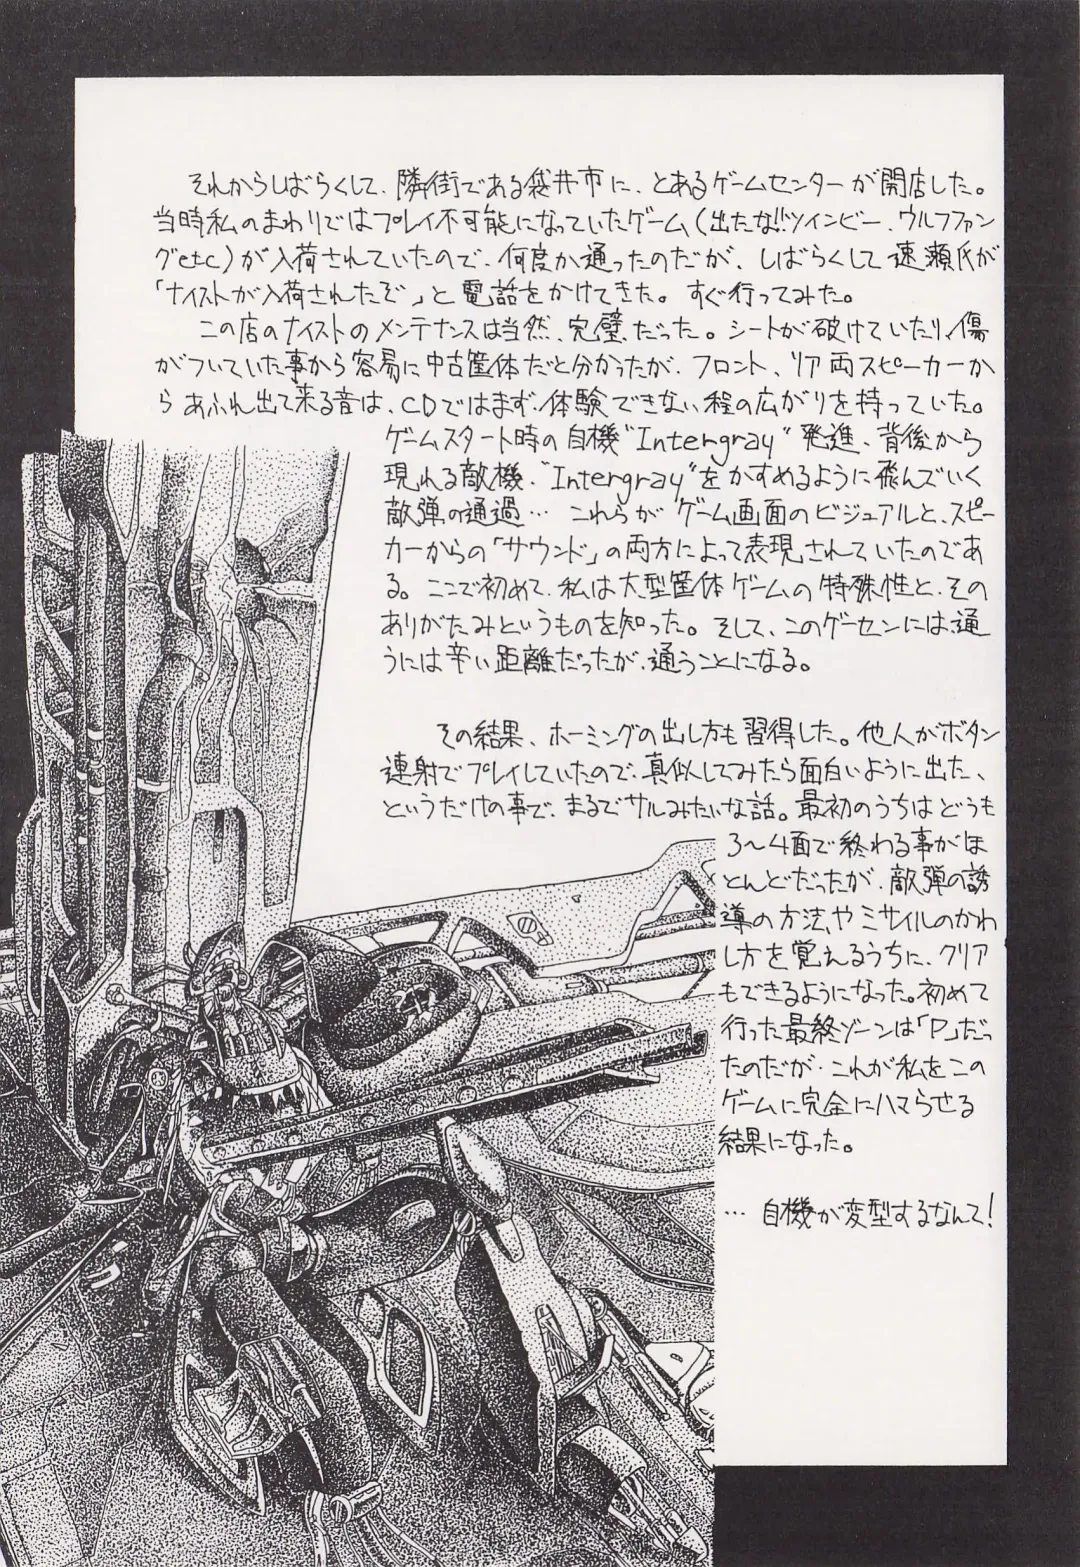 それからしばらくして、隣街である袋井市に、とあるゲームセンターが開店した。
当時私のまわりではプレイ不可能になっていたゲーム(出たな!!ツインビー、ウルフファン
グetc)が入荷されていたので、何度か通ったのだが、しばらくして速瀬氏が
「ナイストが入荷されたぞ」と電話をかけてきた。すぐ行ってみた。
この店のナイストのメンテナンスは当然、完璧だった。シートが破けていたり、傷
がついていた事から容易に中古筐体だと分かったが、フロント、リア両スピーカーか
らあふれ出て来る音は、CDではまず、体験できない程の広がりを持っていた。
ゲームスタート時の自機"Intergray"発進、背後から
現れる敵機、"Intergray"をかすめるように飛んでいく
敵弾の通過… これらがゲーム画面のビジュアルと、スピー
カーからの「サウンド」の両方によって表現されていたのであ
る。ここで初めて、私は大型筐体ゲームの特殊性と、その
ありがたみというものを知った。そして、このゲーセンには、通
うには辛い距離だったが、通うことになる。
その結果、ホーミングの出し方も習得した。他人がボタン
連射でプレイしていたので、真似してみたら面白いように出た、
というだけの事で、まるでサルみたいな話。最初のうちはどうも
3〜4面で終わる事がほ
とんどだったが、敵弾の誘
導の方法、やミサイルのかわ
し方を覚えるうちに、クリア
もできるようになった。初めて
行った最終ゾーンは「P」だっ
たのだが、これが私をこの
ゲームに完全にハマらせる
結果になった。
… 自機が変型するなんて!